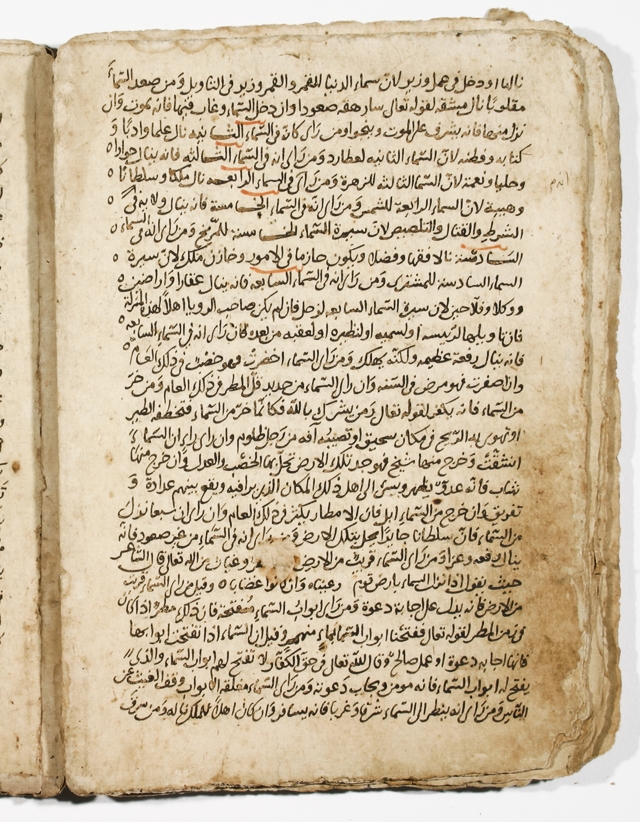 نالها او دخل في عمل وزير لان سماء الدنيا للقمر والقمر وزير في التاويل ومن صعد السماء
مقلوبا نال مشقه لقوله تعالى سارهقه صعودا وان دخل السماء وغاب فيها فانه يموت وان
نزل منها فانه يشرف على الموت وينجوا ومن راى كانه في السماء الثانيه نال علما وادبا و
كتابه وفطنه لان السماء الثانيه لعطارد ومن راى انه في السماء الثالثه فانه ينال جوارا
وحليا ونعمة لان السماء الثالثه للزهرة ومن راى في السماء الرابعه نال ملكا وسلطانا
وهيبة لان السماء الرابعة للشمس ومن راى انه في السماء الخامسة فانه ينال ولاية في
الشرط والقتال والتلصيص لان سيرة السماء الخامسة للمريخ ومن راى انه في السماء
السادسة نال فقها وفضلا ويكون حازما في الامور وخازن ملك لان سيرة
السماء السادسة للمشترى ومن راى انه في السماء السابعه فانه ينال عقارا واراضين
ووكلا وفلاحين لان سيرة السماء السابعه لزحل فان لم يكن صاحب الرويا اهلا لهذه المنزلة
فان تاويلها لرئيسه او لسميه او لنظيره او لعقبه من بعده فان راى انه في السماء السابعه
فانه ينال رفعة عظيمه ولكنه يهلك ومن راى السماء اخضرت فهو خصب في ذلك العام
وان اصفرت فهو مرض في السنه وان راى السماء من حديد قل المطر في ذلك العام ومن خر
من السماء فانه يكفر لقوله تعالى ومن يشرك بالله فكانما خر من السماء فتخطفه الطير
او تهوى به الريح في مكان سحيق او تصيبه آفه من رجل ظلوم وان راى ان السماء
انشقت وخرج منها شيخ فهو جد تلك الارض تحل بها الخصب والعدل وان خرج منها
شاب فانه عدو يظهر ويسئ الى اهل ذلك المكان الذين يرا فيه ويقع بينهم عداوة و
تفريق وان خرج من السماء ابل فان الامطار يكثر في ذلك العام وان راى ان سبعا نزل
من السماء فان سلطانا جايرا يحل بتلك الارض ومن راى انه في السماء من غير صعود فانه
ينال رفعه وعزا ومن راى السماء قربت من الارض وغياث من الله تعالى قال الشاعر
حيث يقول اذا نزل السماء بارض قوم رعيناه وان كانوا غضابا وقيل من راى السماء قربت
من الارض فانه يدل على اجابة دعوة ومن راى ابواب السماء مفتحة فان ذلك مطر واذا كان
في زمن المطر لقوله تعالى ففتحنا ابواب السماء بماء منهمر وقيل ان السماء اذا تفتحت ابوابها
فانها اجابه دعوة او عمل صالح وقال الله تعالى في حق الكفار لا تفتح لهم ابواب السماء والذى
يفتح له ابواب السماء فانه مومن ويجاب دعوته ومن راى السماء مغلقه الابواب وقف الغيث عن
الناس ومن راى انه ينظر الى السماء شرقا وغربا فانه يسافر وان كان اهلا للملك ناله ومن سرق